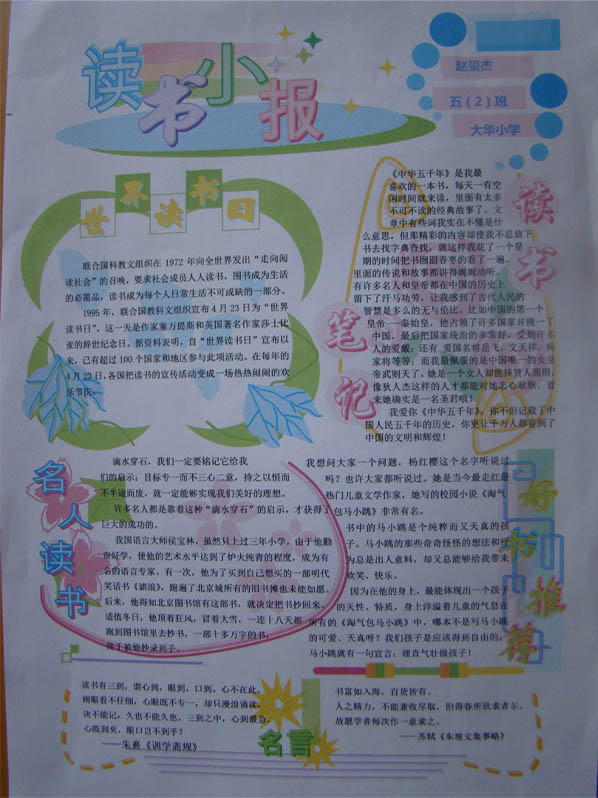 读书小报
赵玺杰
五（2）班
大华小学
世界读书日
联合国科教文组织在 1972 年向全世界发出“走向阅
读社会”的召唤，要求社会成员人人读书，图书成为生活
的必需品，读书成为每个人日常生活不可或缺的一部分。
1995 年，联合国教科文组织宣布 4 月 23 日为“世界
读书日”。这一天是作家塞万提斯和英国著名作家莎士比
亚的辞世纪念日。据资料表明，自“世界读书日”宣布以
来，已有超过 100 个国家和地区参与此项活动，在每年的
4 月 23 日，各国把读书的宣传活动变成一场热热闹闹的欢
乐节庆。
读书笔记
《中华五千年》是我最
喜欢的一本书，每天一有空
闲时间就来读，里面有太多
不可不读的经典故事了。文
章中有些词我实在不懂是什
么意思，但那精彩的内容却使我不忍放下
书去找字典查找，就这样我花了一个星
期的时间把书囫囵吞枣的看了一遍。
里面的传说和故事都讲得娓娓动听，
有许多名人和皇帝都在中国的历史上
留下了汗马功劳，让我感到了古代人民的
智慧是多么的无与伦比，比如中国的第一个
皇帝—秦始皇，他占领了许多国家并统一了
中国，最后把国家统治的非常好，受到许多
人的爱戴；还有 爱国名将岳飞、文天祥、杨
家将等等；而我最佩服的是中国唯一的女皇
帝武则天了，她是一个女人却能择贤人而用，
像狄人杰这样的人才都能对她忠心耿耿，看
来她确实是一名圣君哦！
我爱你《中华五千年》，你不但记载了中
国人民五千年的历史，你更让千万人都看到了
中国的文明和辉煌！
名人读书
滴水穿石，我们一定要铭记它给我
们的启示：目标专一而不三心二意，持之以恒而
不半途而废，就一定能够实现我们美好的理想。
许多名人都是靠着这种“滴水穿石”的启示，才获得了
巨大的成功的。
我国语言大师侯宝林，虽然只上过三年小学，由于他勤
奋好学，使他的艺术水平达到了炉火纯青的程度，成为有
名的语言专家，有一次，他为了买到自己想买的一部明代
笑话书《谑浪》，跑遍了北京城所有的旧书摊也未能如愿。
后来，他得知北京图书馆有这部书，就决定把书抄回来。
适值冬日，他顶着狂风，冒着大雪，一连十八天都
跑到图书馆里去抄书，一部十多万字的书，
终于被他抄录到手。
好书推荐
我想问大家一个问题，杨红樱这个名字听说过
吗？也许大家都听说过。她是当今最走红最
热门儿童文学作家，她写的校园小说《淘气
包马小跳》非常有名。
书中的马小跳是个纯粹而又天真的孩
子。马小跳的那些奇奇怪怪的想法和行
为总是出人意料，却又总能够给我带来
欢笑、快乐。
因为在他的身上，最能体现出一个孩子
的天性、特质，身上洋溢着儿童的气息在
所有的《淘气包马小跳》中，哪本不是写马小跳
的可爱、天真呀！我们孩子是应该得到自由的，
马小跳就有一句宣言：理直气壮做孩子！
读书有三到，谓心到，眼到，口到。心不在此，
则眼看不仔细，心眼既不专一，却只漫浪诵读，
决不能记，久也不能久也。三到之中，心到最急，
心既到矣，眼口岂不到乎？
——朱熹《训学斋规》
名言
书富如入海，百货皆有。
人之精力，不能兼收尽取，但得春所欲求者尔。
故愿学者每次作一意求之。
——苏轼《东坡文集事略》